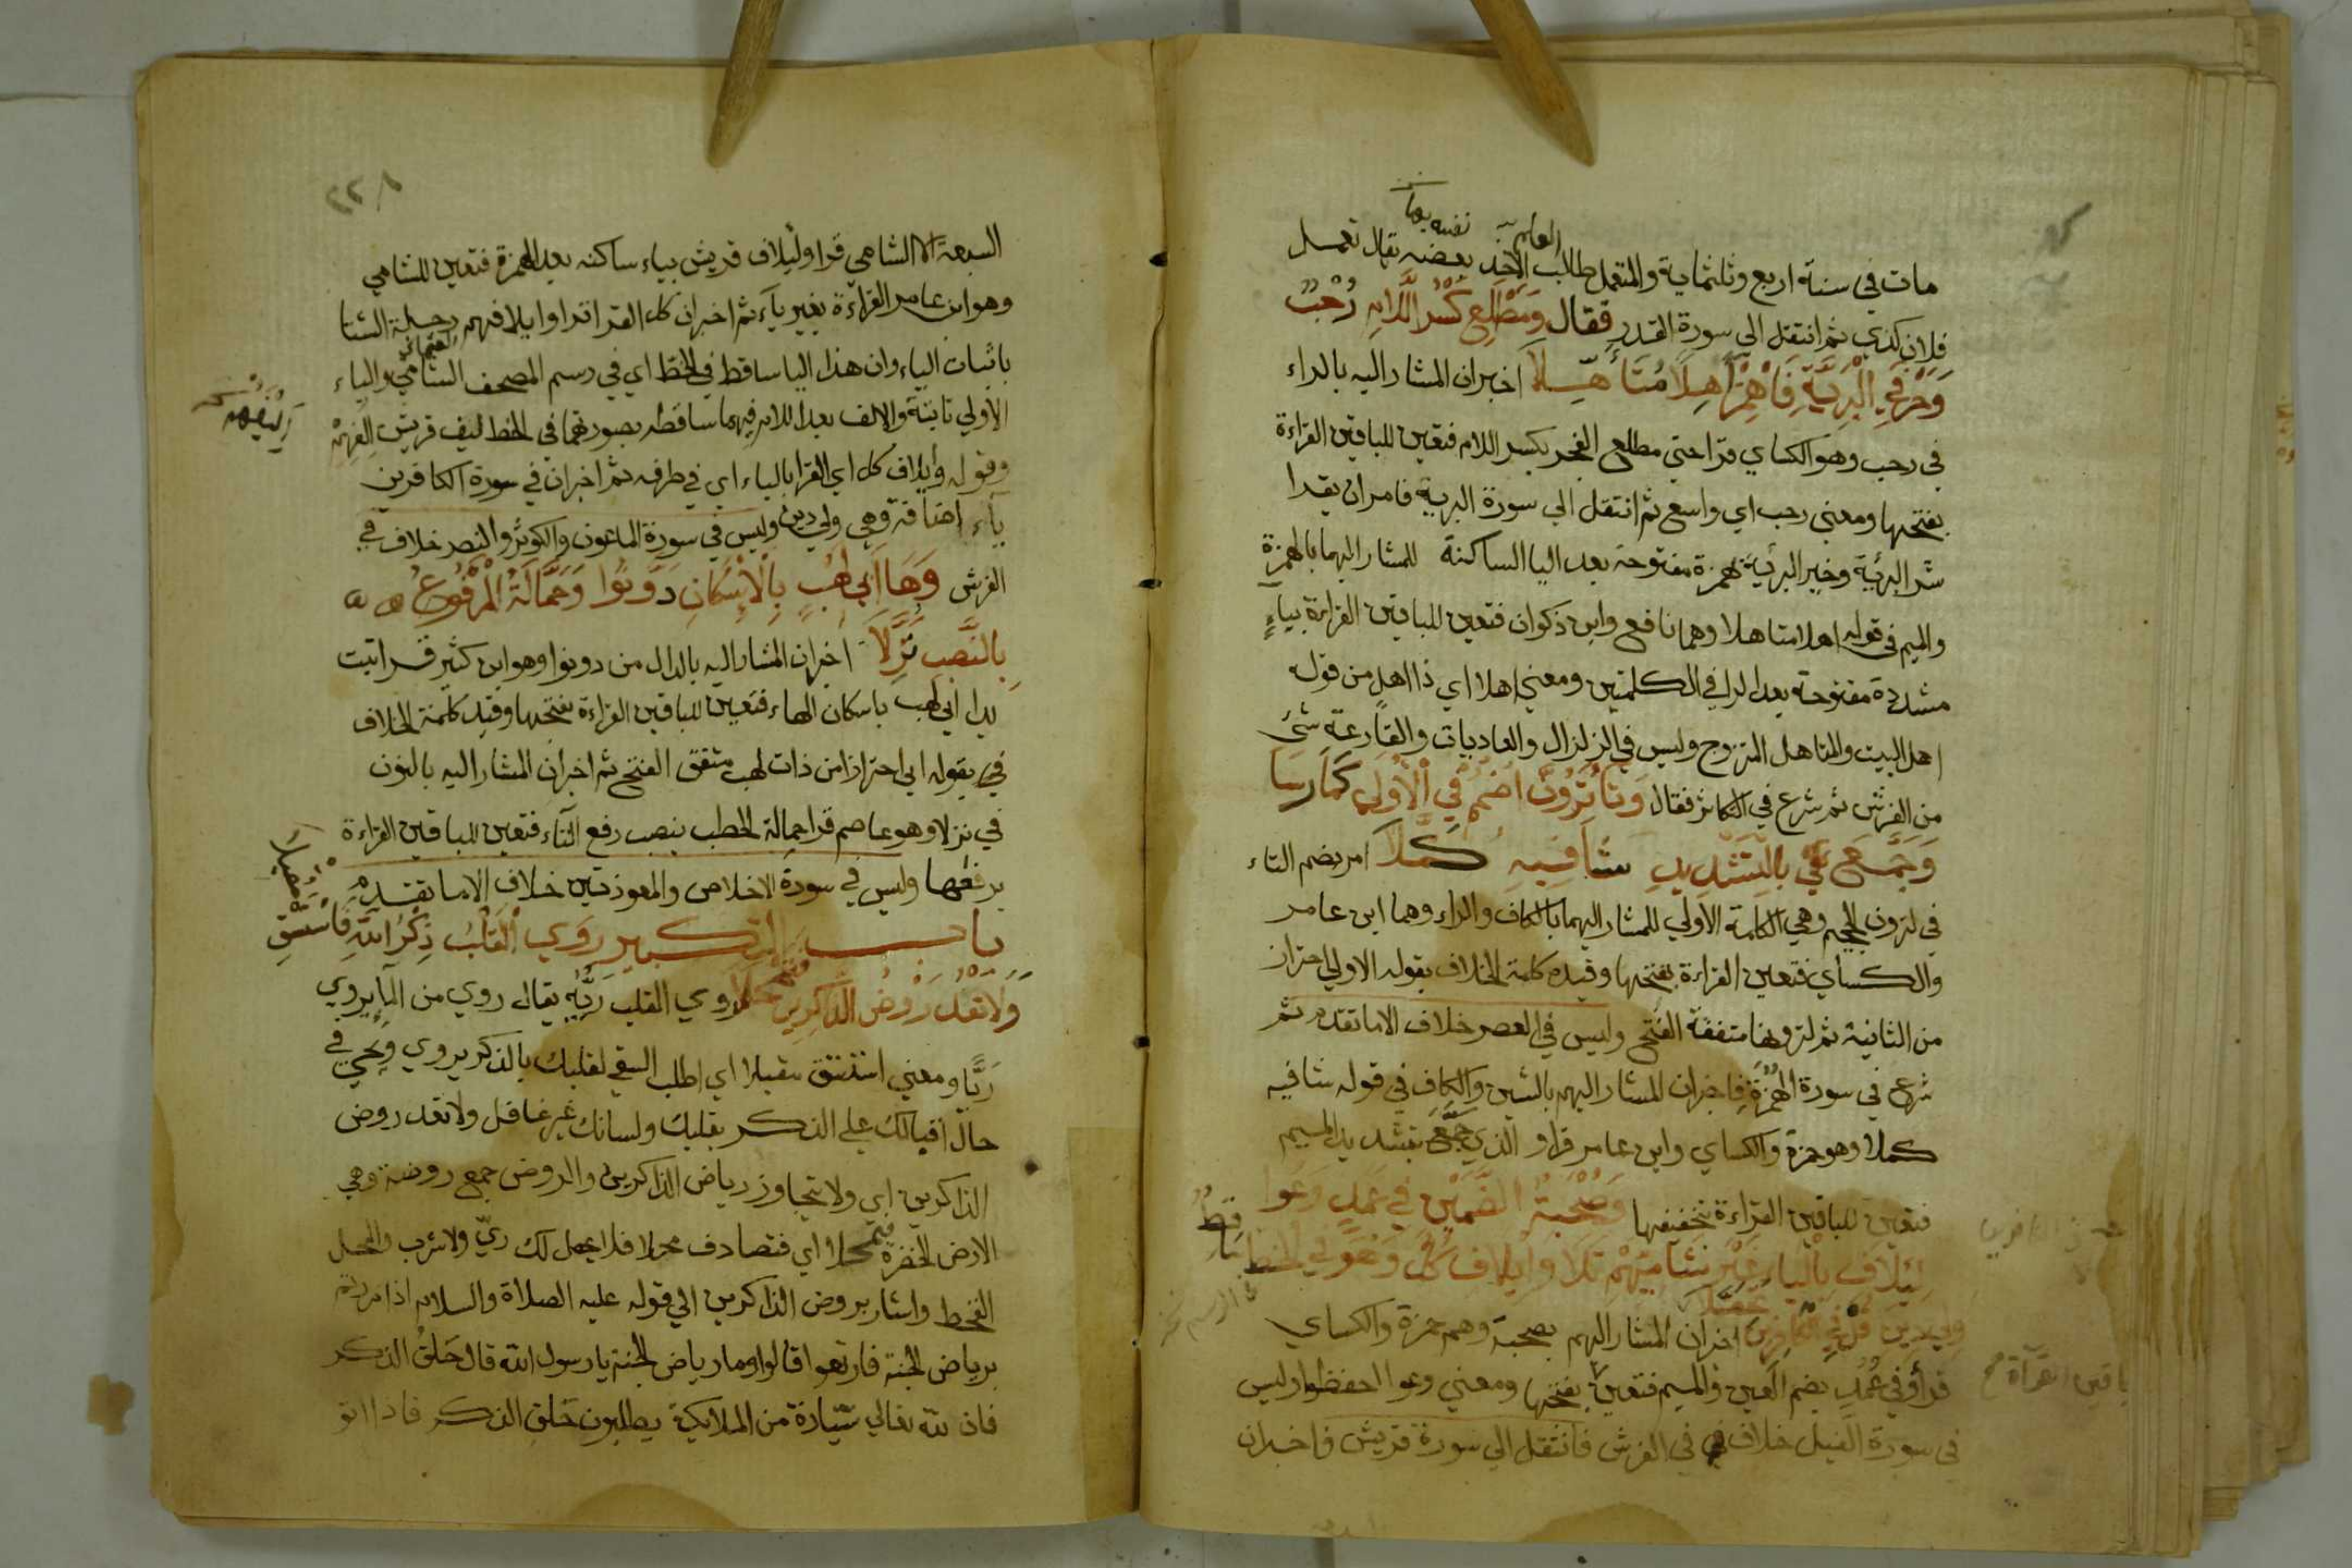 مات في سنة اربع وثلثماية والمتعمل طالب الاخذ بعضه يقال تعمل
فلان كذي ثم انتقل الي سورة القدر فقال وَمَطْلَعِ كَسْرُ اللَّامِ رُحْبٌ
وَحَرْفَيِ الْبَرِيَّةِ فَاهْمِزْ آهِلاً مُتَأَهِّلاَ اخبر ان المشار اليه بالراء
في رحب وهو الكساي قرا حتي مطلع الفجر بكسر اللام فتعين للباقين القراءة
بفتحها ومعني رحب اي واسع ثم انتقل الي سورة البرية فامر ان يقرا
شر البرئية وخير البرئية بهمزة مفتوحة بعد اليا الساكنة للمشار اليهما بالهمزة
والميم في قوله اهلا متاهلا وهما نافع وابن ذكوان فتعين للباقين القراءة بياء
مشددة مفتوحة بعد الرا في الكلمتين ومعني اهلا اي ذا اهل من قوله
اهل البيت والمتاهل المتزوج وليس في الزلزال والعاديات والقارعة شئ
من الفرش ثم شرع في التكاثر فقال وَتَا تَرَوُنَّ اضْمُمْ فِي الْأُولَي كَمَا رَسَا
وَجَمَّعَ بِالتَّشْدِيدِ شَافِيهِ كَمَّلاَ امر بضم التاء
في لترون الجحيم وهي الكلمة الاولي للمشار اليهما بالكاف والراء وهما ابن عامر
والكساي فتعين القراءة بفتحها وقيد كلمة الخلاف بقوله الاولي احتراز
من الثانية ثم لترونها متفقة الفتح وليس في العصر خلاف الا ما تقدم ثم
شرع في سورة الهُمَزة فاخبر ان المشار اليهم بالشين والكاف في قوله شافيه
كملا وهو حمزة والكساي وابن عامر قراو الذي جَمَّعَ بتشديد الميم
فتعين للباقين القراءة بتخفيفها وَصُحْبَةُ الضَّمَّيْنِ فِي عَمَدٍ وَعَوْا
لِئِيلَافِ بِالْيَاءِ غَيْرُ شَامِيِّهِمْ تَلَا وَاِيلَافِ كُلٌّ وَهْوَ فِي الخط سَاقِطٌ
وَلِي دِينِ قُلْ فِي الْكَافِرِينَ تحصلا اخبر ان المشار اليهم بصحبة وهم حمزة والكساي
قرأو في عُمُدٍ بضم العين والميم فتعين بفتحها ومعني وعوا احفظوا وليس
في سورة الفيل خلاف في الفرش فانتقل الي سورة قريش فاخبر ان
٢٢٨
السبعة الا الشامي قرا ولئيلاف قريش بياء ساكنه بعد الهمزة فتعين للشامي
وهو ابن عامر القراءة بغير ياء ثم اخبر ان كل القرا قراوا ايلافهم رحلة الشتا
باثبات الياء وان هذا اليا ساقط في الخط اي في رسم المصحف العثماني والياء
الاولي ثابتة والالف بعد اللام فيهما ساقطه بصورتهما في الخط ليف قريش الفِهِمْ
وقوله وايلاف كل اي القرا بالياء اي في طرفه ثم اخبر ان في سورة الكافرين
ياء اضافة وهي ولي دين وليس في سورة الماعون والكوثر والنصر خلاف في
الفرش وَهَا اَبِي لَهْبٍ بِالْاِسْكَانِ دَوَّنُوا وَحَمَّالَةُ الْمَرْفُوعُ
بِالنَّصْبِ نُزِّلاَ اخبر ان المشار اليه بالدال من دونوا وهو ابن كثير قرا تبت
يدا ابي لهب باسكان الهاء فتعين للباقين القراءة بفتحها وقيد كلمة الخلاف
في بقوله ابي احترازا من ذات لهب متفق الفتح ثم اخبر ان المشار اليه بالنون
في نزلا وهو عاصم قرا حمالة الحطب بنصب رفع التاء فتعين للباقين القراءة
برفعها وليس في سورة الاخلاص والمعوذتين خلاف الا ما تقدم
باب التكبير رَوِي الْقَلْبُ ذِكْرُ اللهِ فَاسْتَسْقِ
وَلَا تَعْدُ رَوْضَ الذَّاكِرِينَ روي القلب رَيِّهِ يقال روي من الما يروي
رَيًّا ومعني استسق مقبلا اي اطلب السقي لقلبك بالذكر يروي ويحي في
حال اقبالك علي الذكر بقلبك ولسانك غير غافل ولا تعد روض
الذاكرين اي ولا تتجاوز رياض الذاكرين والروض جمع روضة وهي
الارض الخضرة فتمحلا اي فتصادف محلا فلا يحصل لك ريّ ولا شرب والمحل
القحط واشار بروض الذاكرين الي قوله عليه الصلاة والسلام اذا مررتم
برياض الجنة فارتعوا قالوا وما رياض الجنة يا رسول الله قال حَلَقُ الذكر
فان لله تعالي سيّارة من الملايكة يطلبون حَلق الذكر فاذا اتو